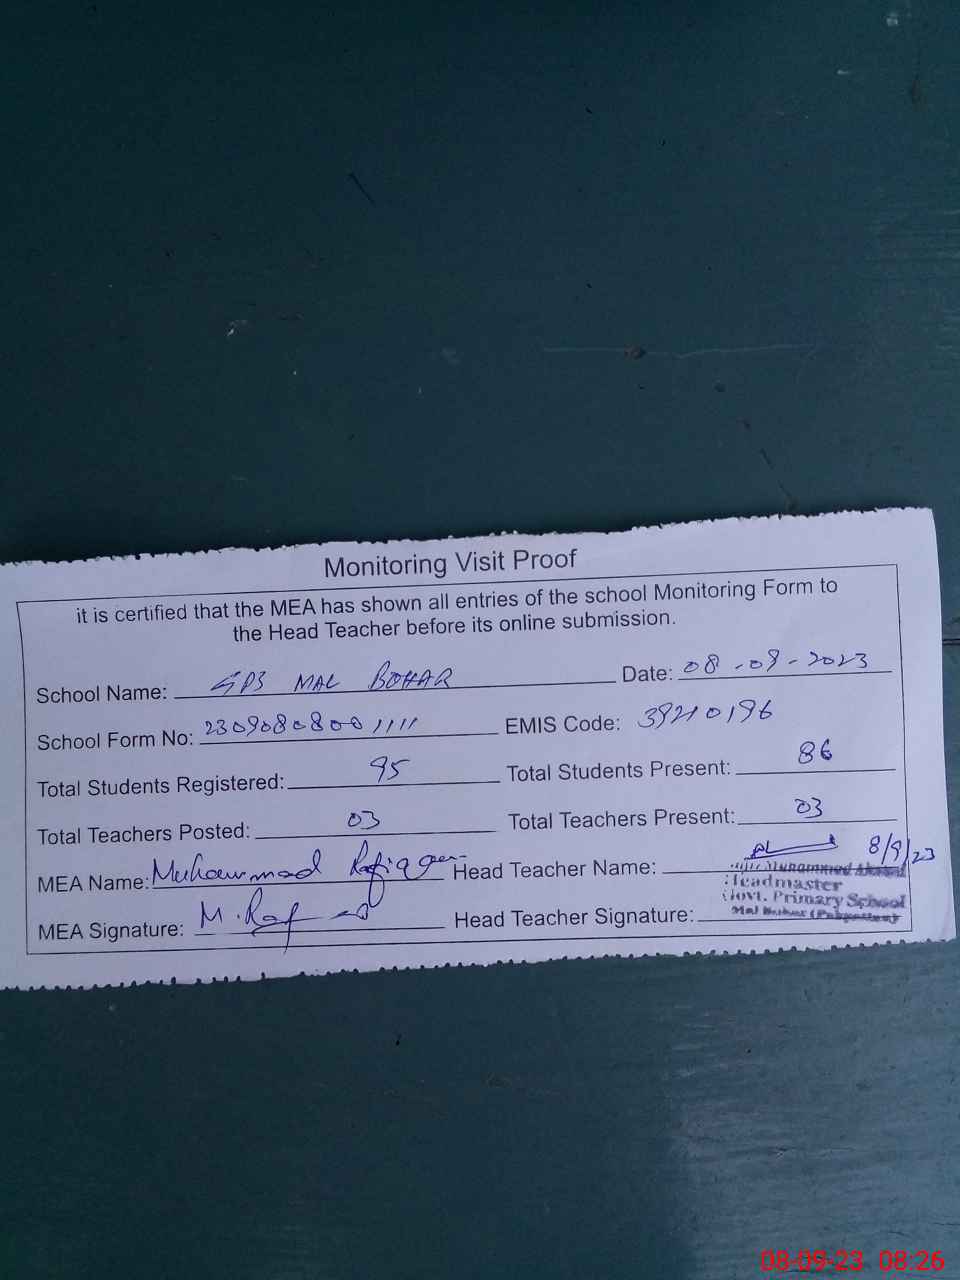 Monitoring Visit Proof
it is certified that the MEA has shown all entries of the school Monitoring Form to
the Head Teacher before its online submission.
School Name: GPS MAL BOHAR Date: 08-09-2023
School Form No: 23090808001111 EMIS Code: 39210196
Total Students Registered: 95 Total Students Present: 86
Total Teachers Posted: 03 Total Teachers Present: 03
MEA Name: Muhammad Rafiq Head Teacher Name: 8/9/23
Muhammad
Headmaster
Govt. Primary School
Mal (Pakpattan)
MEA Signature: M. Raf Head Teacher Signature:
08-09-23 08:26